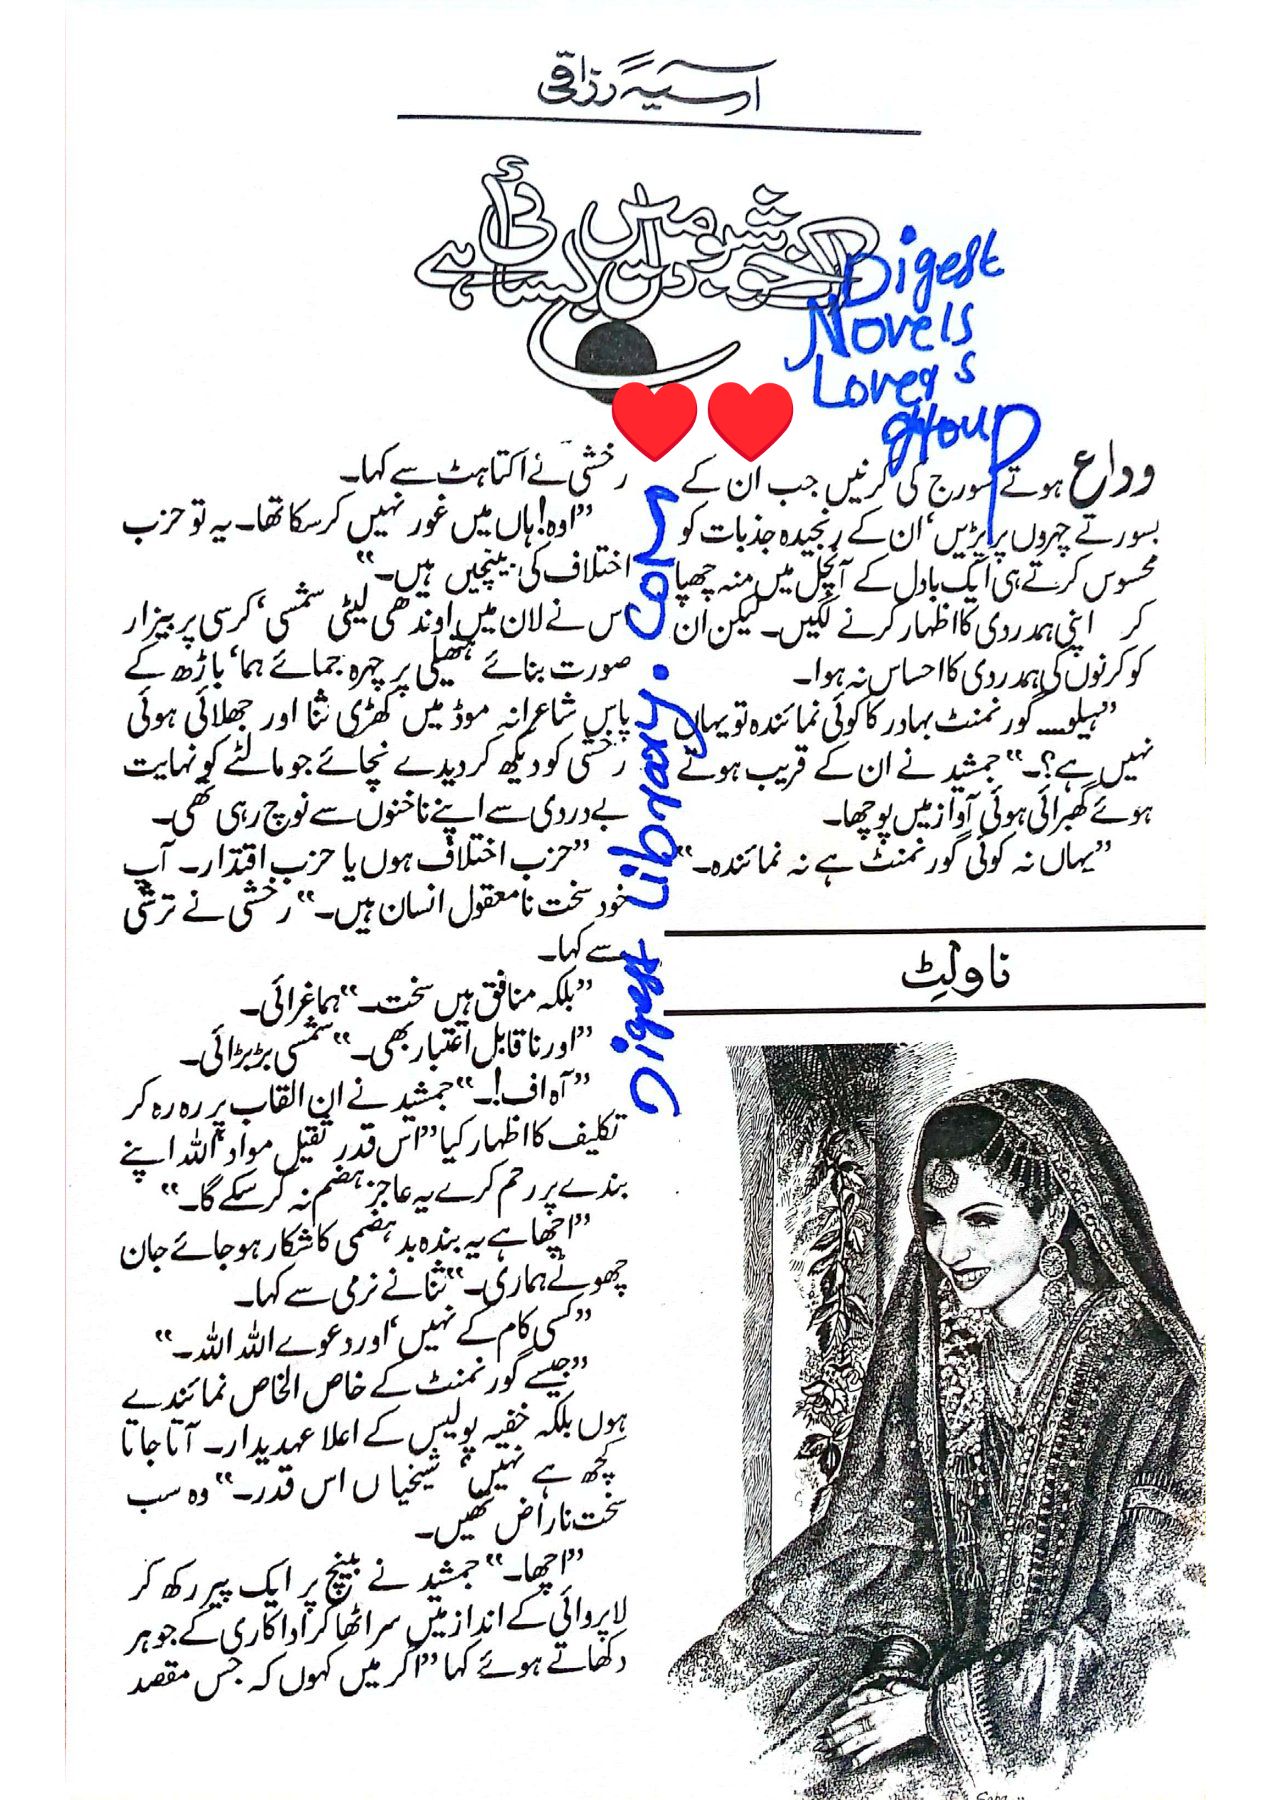 آسیہ رزاقی
اک خوشبو میں
دل بستا ہے
Digest
Novels
Lovers
group
وداع ہوتے سورج کی کرنیں جب ان کے
بسورتے چہروں پر پڑیں‘ ان کے رنجیدہ جذبات کو
محسوس کرتے ہی ایک بادل کے آنچل میں منہ چھپا
کر اپنی ہمدردی کا اظہار کرنے لگیں۔ لیکن ان
کو کرنوں کی ہمدردی کا احساس نہ ہوا۔
”ہیلو۔۔۔ گورنمنٹ بہادر کا کوئی نمائندہ تو یہاں
نہیں ہے؟۔“ جمشید نے ان کے قریب ہوتے
ہوئے گھبرائی ہوئی آواز میں پوچھا۔
”یہاں نہ کوئی گورنمنٹ ہے نہ نمائندہ۔“
ناولٹ
رخشی نے اکتاہٹ سے کہا۔
”اوہ! ہاں میں غور نہیں کرسکا تھا۔ یہ تو حزب
اختلاف کی بینچیں ہیں۔“
اس نے لان میں اوندھی لیٹی شمسی‘ کرسی پر بیزار
صورت بنائے ہتھیلی پر چہرہ جمائے ہما‘ باڑھ کے
پاس شاعرانہ موڈ میں کھڑی ثنا اور جھلائی ہوئی
رخشی کو دیکھ کر دیدے نچائے جو مالٹے کو نہایت
بے دردی سے اپنے ناخنوں سے نوچ رہی تھی۔
”حزب اختلاف ہوں یا حزب اقتدار۔ آپ
خود سخت نامعقول انسان ہیں۔“ رخشی نے ترشی
سے کہا۔
”بلکہ منافق ہیں سخت۔“ ہما غرائی۔
”اور ناقابل اعتبار بھی۔“ شمسی بڑبڑائی۔
”آہ اف!۔“ جمشید نے ان القاب پر رہ رہ کر
تکلیف کا اظہار کیا ”اس قدر ثقیل مواد‘ اللہ اپنے
بندے پر رحم کرے یہ عاجز ہضم نہ کرسکے گا۔“
”اچھا ہے یہ بندہ بدہضمی کا شکار ہوجائے جان
چھوٹے ہماری۔“ ثنا نے نرمی سے کہا۔
”کسی کام کے نہیں‘ اور دعوے اللہ اللہ۔“
”جیسے گورنمنٹ کے خاص الخاص نمائندے
ہوں بلکہ خفیہ پولیس کے اعلا عہدیدار۔ آتا جاتا
کچھ ہے نہیں‘ شیخیاں اس قدر۔“ وہ سب
سخت ناراض تھیں۔
”اچھا۔“ جمشید نے بینچ پر ایک پیر رکھ کر
لاپروائی کے انداز میں سر اٹھا کر اداکاری کے جوہر
دکھاتے ہوئے کہا ”اگر میں کہوں کہ جس مقصد
Digest Library.com